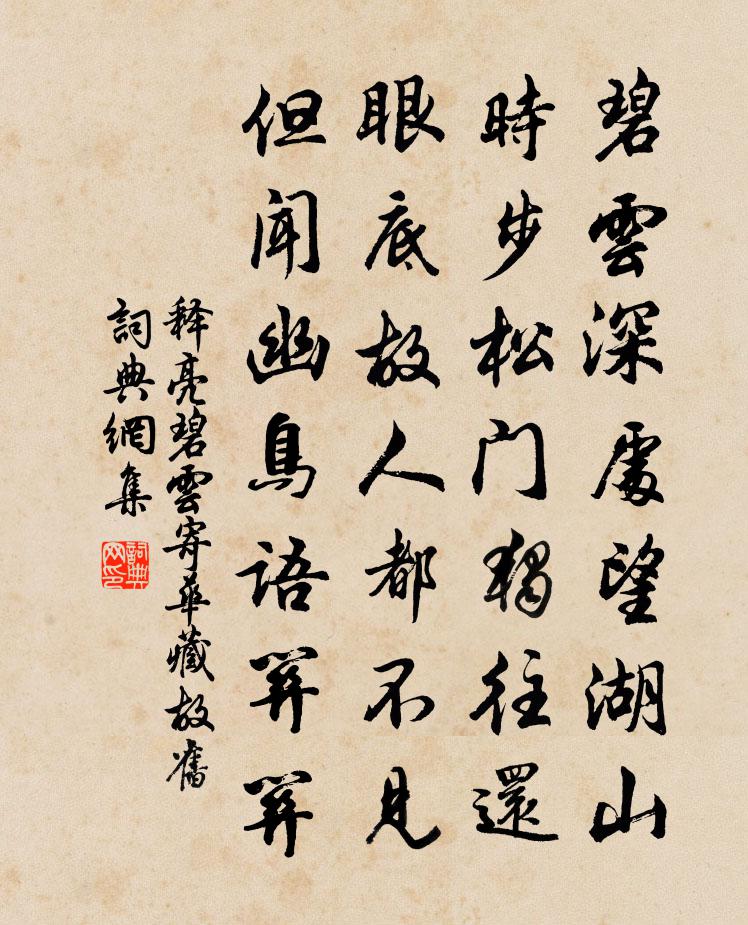 碧雲深處望湖山
時步松門獨往還
眼底故人都不見
但聞幽鳥語關關
释亮碧雲寄華藏故舊
詞典網集
詞典网印